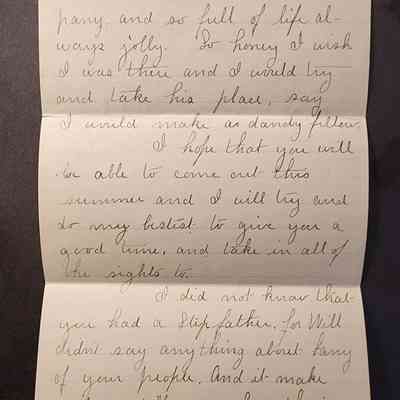 pany and so full of life al-
ways jolly. So honey I wish
I was there and I would try
and take his place, say
I would make a dandy fellow.
I hope that you will
be able to come out this
summer and I will try and
do my bestest to give you a
good time, and take in all of
the sights to.
I did not know that
you had a Stepfather, for Will
didn't say anything about
of your people. And it make